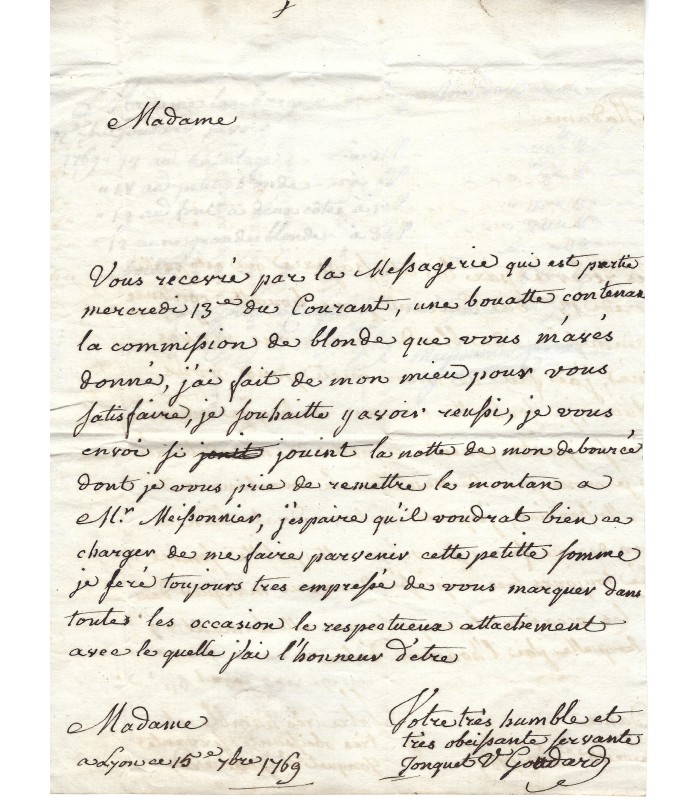 Madame
Vous recevré par la Messagerie qui est partie
mercredi 13e du Courant, une bouatte contenan
la commission de blonde que vous m'avés
donné, j'ai fait de mon mieu pour vous
satisfaire, je souhaitte y avoir reussi, je vous
envoi si jouint la notte de mon debourcé
dont je vous prie de remettre le montan a
Mr. Meissonnier, j'espaire qu'il voudrat bien ce
charger de me faire parvenir cette petitte somme
je feré toujours tres empressé de vous marquer dans
toutes les occasion le respectueux attachement
avec le quelle j'ai l'honneur d'etre
Madame
a Lyon ce 15e 7bre 1769
Votre très humble et
très obeissante servante
Jonquet Ve Goudard